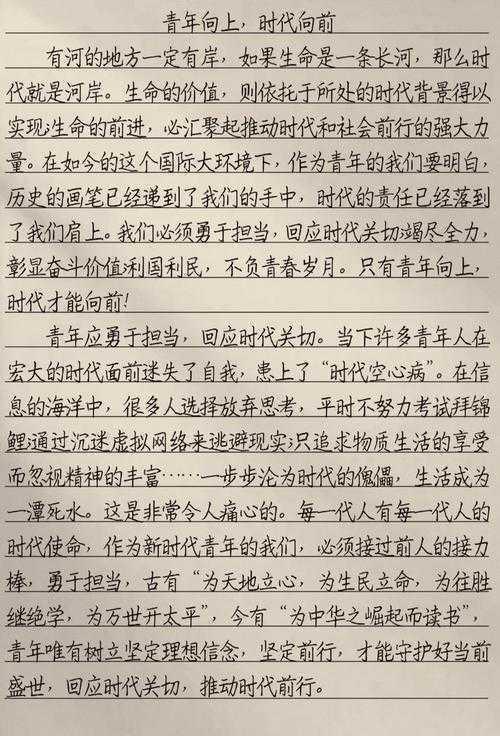 青年向上，时代向前
有河的地方一定有岸，如果生命是一条长河，那么时
代就是河岸。生命的价值，则依托于所处的时代背景得以
实现;生命的前进，必汇聚起推动时代和社会前行的强大力
量。在如今的这个国际大环境下，作为青年的我们要明白，
历史的画笔已经递到了我们的手中，时代的责任已经落到
了我们肩上。我们必须勇于担当，回应时代关切;竭尽全力，
彰显奋斗价值;利国利民，不负青春岁月。只有青年向上，
时代才能向前!
青年应勇于担当，回应时代关切。当下许多青年人在
宏大的时代面前迷失了自我，患上了“时代空心病”。在信
息的海洋中，很多人选择放弃思考，平时不努力考试拜锦
鲤;通过沉迷虚拟网络来逃避现实;只追求物质生活的享受
而忽视精神的丰富……一步步沦为时代的傀儡，生活成为
一潭死水。这是非常令人痛心的。每一代人有每一代人的
时代使命，作为新时代青年的我们，必须接过前人的接力
棒，勇于担当，古有“为天地立心，为生民立命，为往胜
继绝学，为万世开太平”，今有“为中华之崛起而读书”，
青年唯有树立坚定理想信念，坚定前行，才能守护好当前
盛世，回应时代关切，推动时代前行。